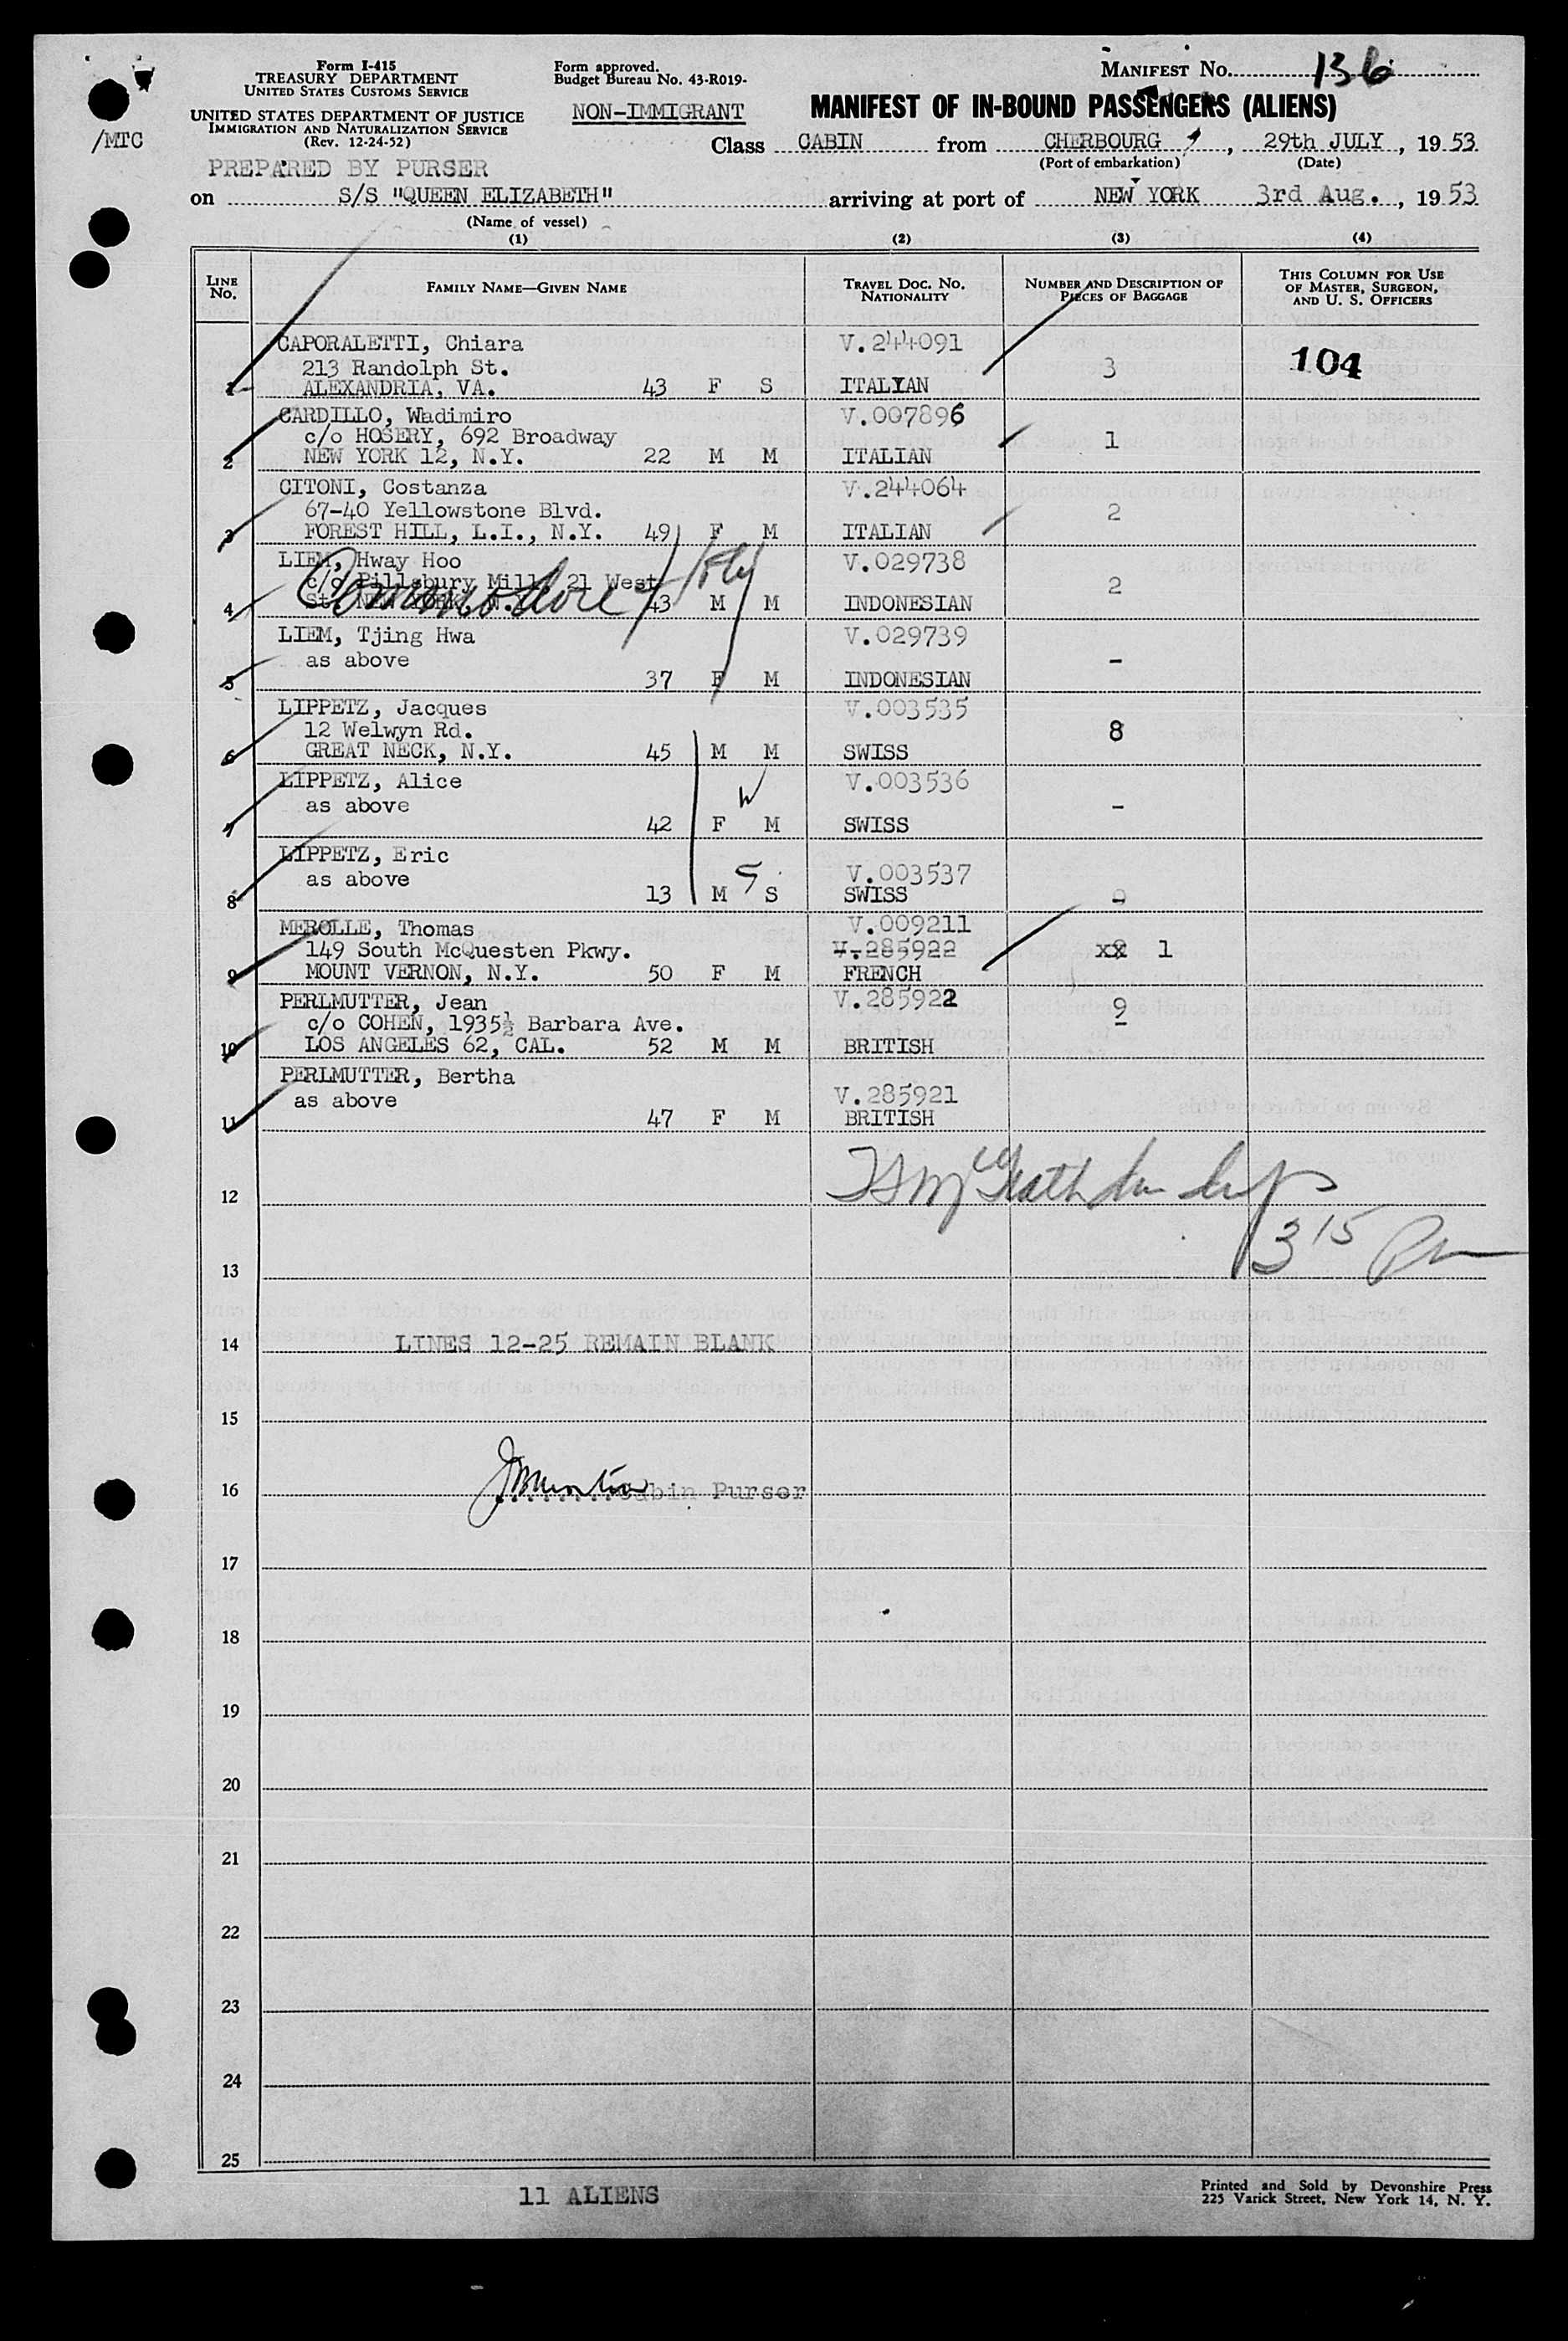 Form I-415
TREASURY DEPARTMENT
UNITED STATES CUSTOMS SERVICE
UNITED STATES DEPARTMENT OF JUSTICE
IMMIGRATION AND NATURALIZATION SERVICE
(Rev. 12-24-52)
/MTC
PREPARED BY PURSER
Form approved.
Budget Bureau No. 43-R019-
NON-IMMIGRANT
MANIFEST NO. 136
MANIFEST OF IN-BOUND PASSENGERS (ALIENS)
Class CABIN from CHERBOURG, 29th JULY, 19 53
(Port of embarkation) (Date)
on S/S "QUEEN ELIZABETH" arriving at port of NEW YORK 3rd Aug., 19 53
(Name of vessel)
(1) (2) (3) (4)
LINE No. FAMILY NAME—GIVEN NAME TRAVEL DOC. NO. NATIONALITY NUMBER AND DESCRIPTION OF PIECES OF BAGGAGE THIS COLUMN FOR USE OF MASTER, SURGEON, AND U. S. OFFICERS
CAPORALETTI, Chiara V.244091
213 Randolph St. 3 104
1 ALEXANDRIA, VA. 43 F S ITALIAN
CARDILLO, Wadimiro V.007896
c/o HOSERY, 692 Broadway 1
2 NEW YORK 12, N.Y. 22 M M ITALIAN
CITONI, Costanza V.244064
67-40 Yellowstone Blvd. 2
3 FOREST HILL, L.I., N.Y. 49 F M ITALIAN
LIEM, Hway Hoo V.029738
c/o Pillsbury Mill, 21 West 2
Commodore
4 St. NEW YORK, N. 43 M M INDONESIAN
LIEM, Tjing Hwa V.029739
as above -
5 37 F M INDONESIAN
LIPPETZ, Jacques V.003535
12 Welwyn Rd. 8
6 GREAT NECK, N.Y. 45 M M SWISS
LIPPETZ, Alice V.003536
as above -
7 42 F M SWISS
LIPPETZ, Eric
as above V.003537
8 13 M S SWISS
MEROLLE, Thomas V.009211
149 South McQuesten Pkwy. V.285922 xx 1
9 MOUNT VERNON, N.Y. 50 F M FRENCH
PERLMUTTER, Jean V.285922 9
c/o COHEN, 1935½ Barbara Ave. -
10 LOS ANGELES 62, CAL. 52 M M BRITISH
PERLMUTTER, Bertha
as above V.285921
11 47 F M BRITISH
12
3 15 Pm
13
14 LINES 12-25 REMAIN BLANK
15
16 ........Cabin Purser
17
18
19
20
21
22
23
24
25
11 ALIENS
Printed and Sold by Devonshire Press
225 Varick Street, New York 14, N. Y.